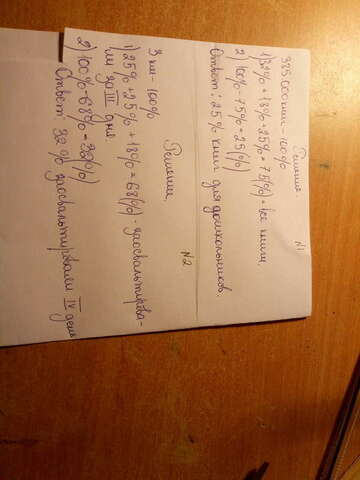 N1
Решение.
385 000 книг – 100%
1) 32% + 18% + 25% = 75(%) - все книги
2) 100% - 75% = 25(%)
Ответ: 25% книг для дошкольников.
N2
Решение.
9 км – 100%
1) 25% + 25% + 18% = 68(%) - заасвальтирова-
ли за III дня
2) 100% - 68% = 32(%)
Ответ: 32% заосвальтировали IV день